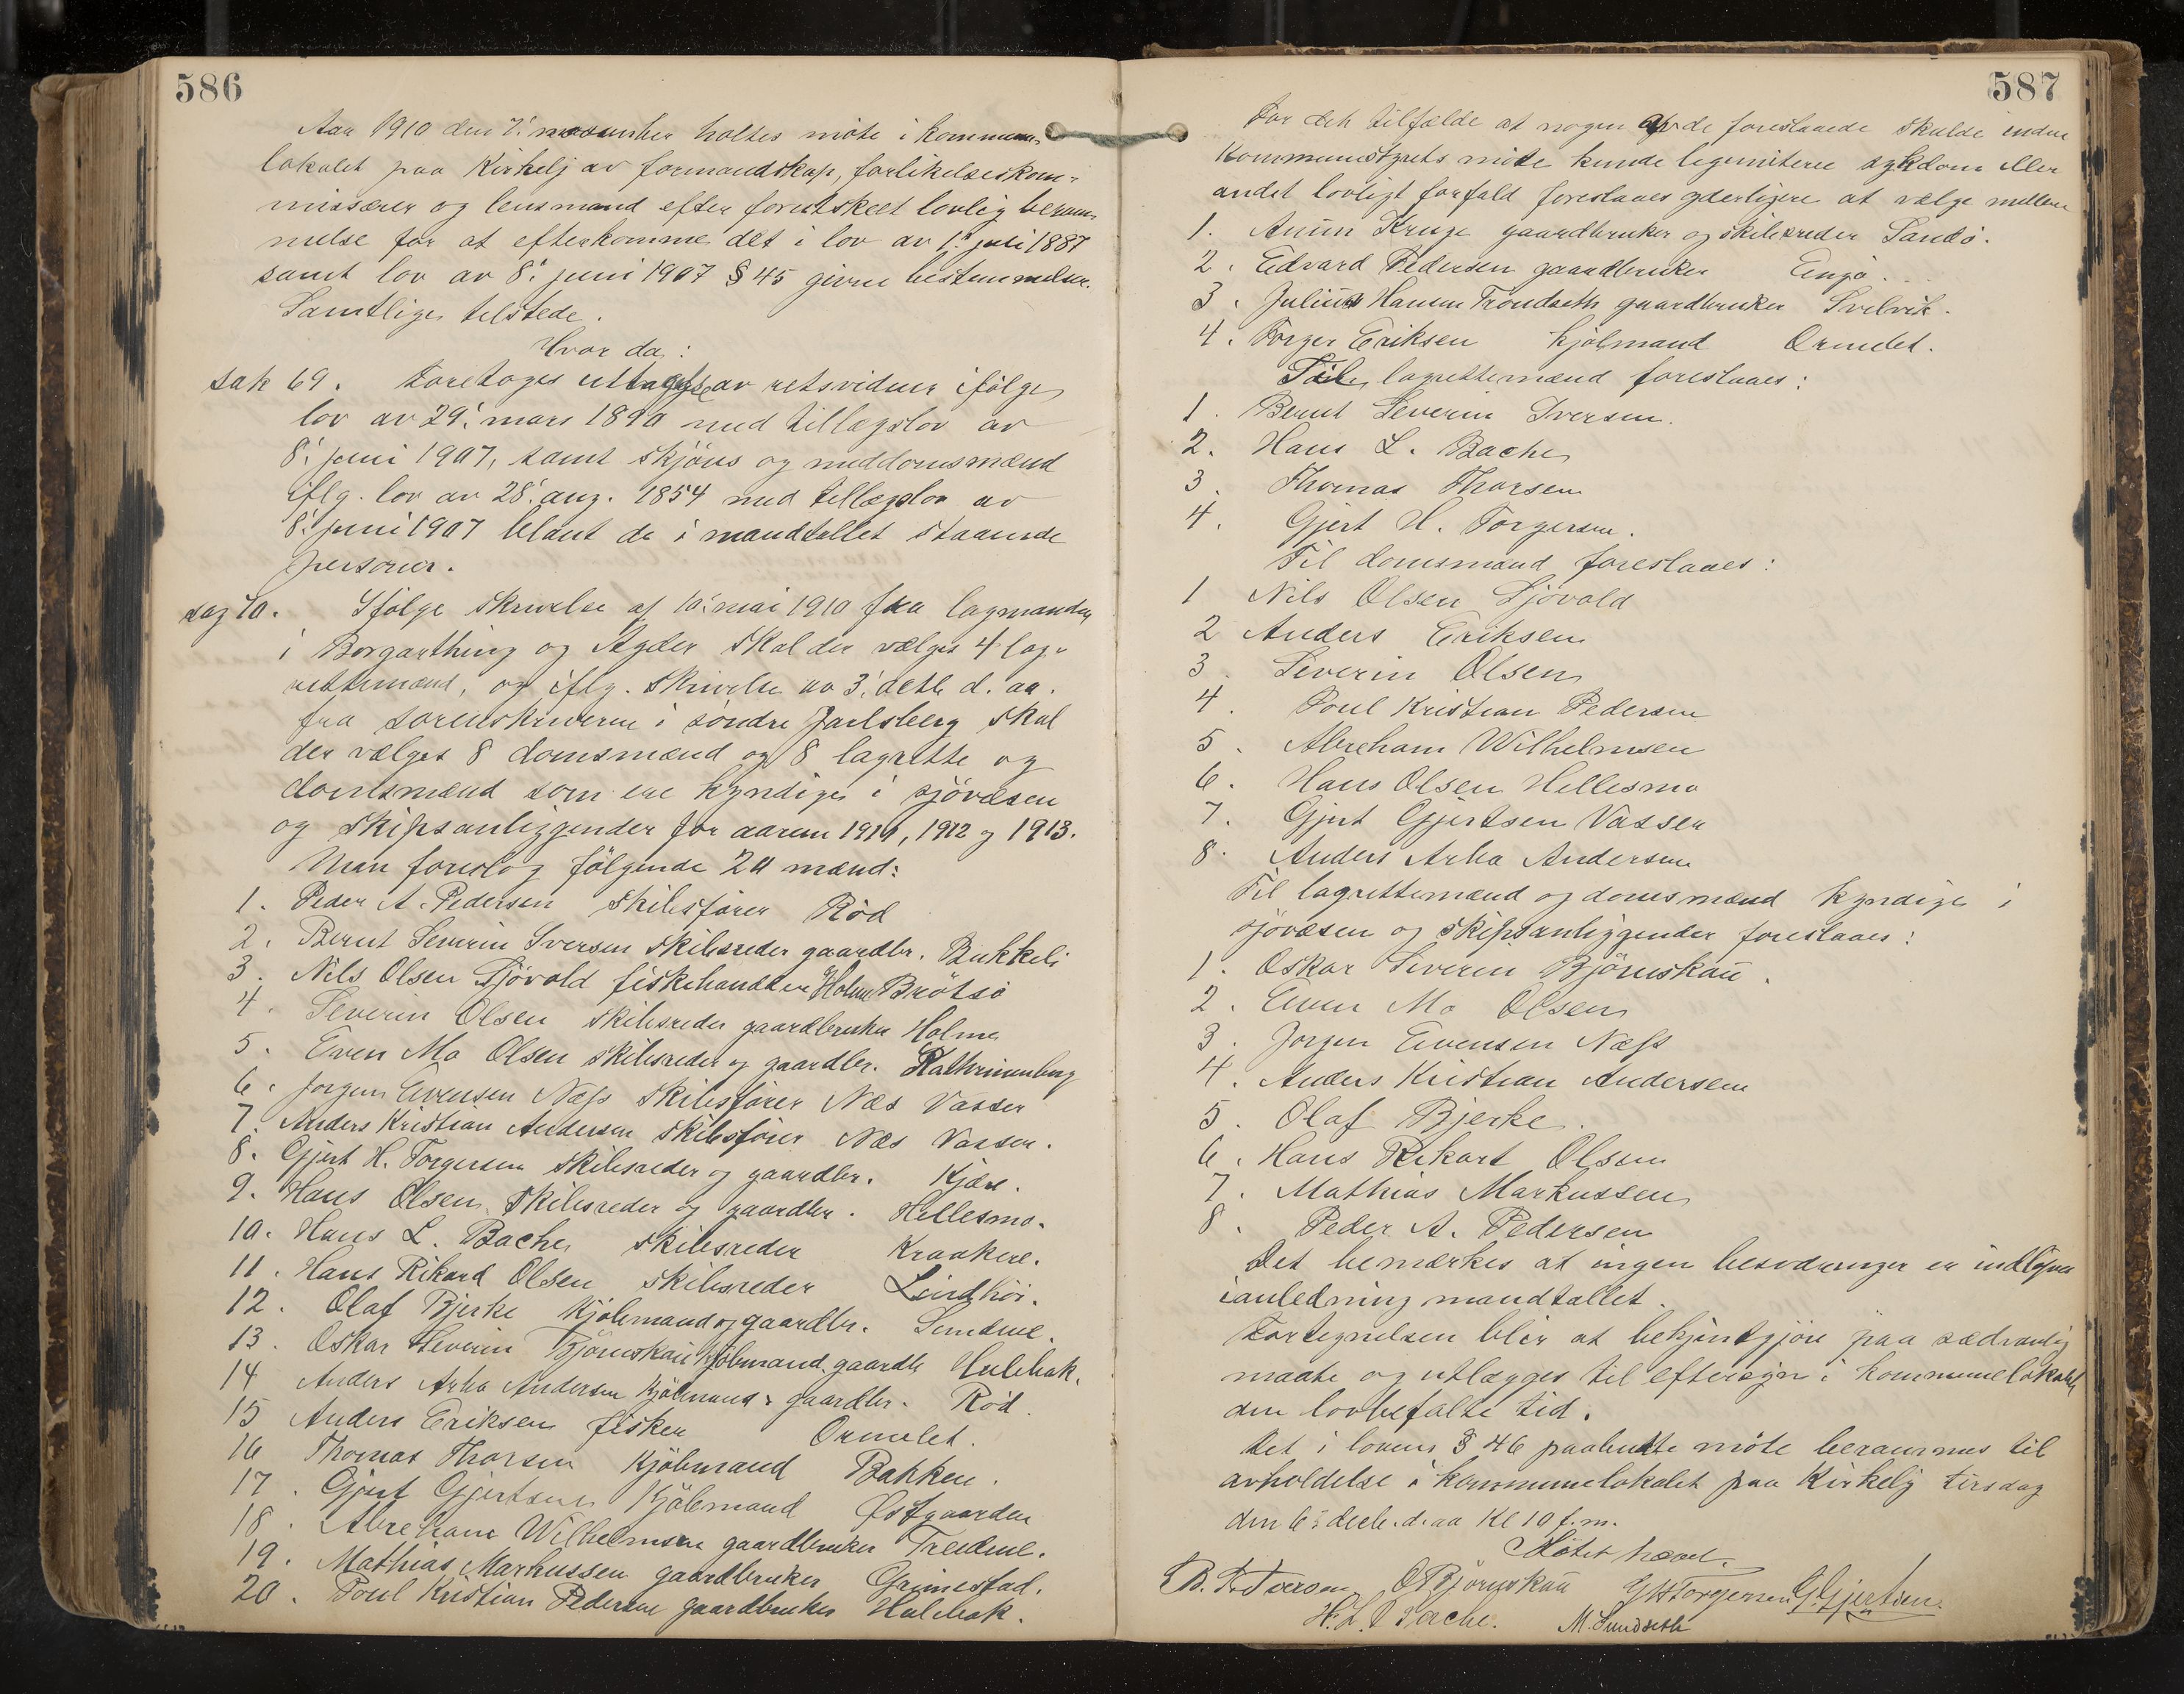 586
Aar 1910 den 7' november holtes møte i kommune
lokalet paa Kirkelj av formandskap, forlikelseskom-
missærer og lensmand efter forutskeet lovlig beram
melse for at efterkomme det i lov av 1' juli 1887
samt lov av 8' juni 1907 § 45 givne bestemmelser.
Samtlige tilstede.
Hvor da:
sak 69. Foretoges av retsvidner ifølge
lov av 29' mars 1890 med tillægslov av
8' juni 1907, samt skjöns og meddomsmænd
iflg. lov av 28' aug. 1854 med tillægslov av
8' juni 1907 blant de i mandtallet staaende
personer.
sag 70. Ifølge skrivelse af 10' mai 1910 fra lagmanden
i Borgarthing og Agder skal der vælges 4 lag-
rettemænd, og iflg. skrivelse av 3' dette d. aa.
fra sorenskriveren i søndre Jarlsberg skal
der vælges 8 domsmænd og 8 lagrette og
domsmænd som ere kyndige i sjövæsen
og skipsanliggender for aarene 1911, 1912 og 1913.
Man foreslog følgende 20 mænd:
1. Peder A. Pedersen skibsfører Röd
2. Bernt Severin Iversen skibsreder gaardbr. Bukkeli
3. Nils Olsen Sjövold fiskehandler Holm Brötsö
4. Severin Olsen skibsreder gaardbruker Holme
5. Even Mo Olsen skibsreder og gaardbr. Kathrineberg
6. Jørgen Evensen Næss skibsfører Næs Vasser
7. Anders Kristian Andersen skibsfører Næs Vasser.
8. Gjert H. Torgersen skibsreder og gaardbr. Kjære.
9. Hans Olsen skibsreder og gaardbr. Hellesmo.
10. Hans L. Bache skibsreder Kraakere.
11. Hans Rikard Olsen skibsreder Lindhöi.
12. Olaf Bjerke Kjöbmand og gaardbr. Sundene.
13. Oskar Severin Björnskau Kjöbmand gaardb Hulebak.
14 Anders Arba Andersen Kjöbmand & gaardbr. Röd.
15 Anders Eriksen fisker Ormelet.
16 Thomas Thorsen Kjöbmand Bakken.
17. Gjert Gjertsen Kjöbmand Østgaarden
18. Abreham Wilhelmsen gaardbruker Treidene.
19. Mathias Markussen gaardbruker Grimestad.
20. Poul Kristian Pedersen gaardbruker Hulebak.
587
For det tilfælde at nogen av de foreslaaede skulde inden
Kommunestyrets møte kunde legemitere sykdom eller
andet lovligt forfald foreslaaes yderligere at vælge mellem
1. Anun Kruge gaardbruker og skibsreder Sandö.
2. Edvard Pedersen gaardbruker Engö.
3. Julius Hansen Trondseth gaardbruker Svelvik.
4. Torger Eriksen kjöbmand Ormelet.
Til lagrettemænd foreslaaes:
1. Bernt Severin Iversen.
2. Hans L. Bache
3. Thomas Thorsen
4. Gjert H. Torgersen.
Til domsmænd foreslaaes:
1 Nils Olsen Sjövold
2 Anders Eriksen
3. Severin Olsen
4. Poul Kristian Pedersen
5. Abreham Wilhelmsen
6. Hans Olsen Hellesmo
7. Gjert Gjertsen Vasser
8. Anders Arba Andersen
Til lagrettemænd og domsmænd kyndige i
sjövæsen og skipsanliggender foreslaaes:
1. Oskar Severin Björnskau.
2. Even Mo Olsen
3. Jorgen Evensen Næss
4. Anders Kristian Andersen
5. Olaf Bjerke.
6. Hans Rikart Olsen
7. Mathias Markussen
8. Peder A. Pedersen
Det bemærkes at ingen besværinger er
i anledning mandtallet.
Fortegnelsen blir at bekjentgjöre paa sædvanlig
maate og utlægges til eftersyn i kommunelokalet
den lovbefalte tid.
Det i lovens § 46 paabudte møte berammes til
avholdelse i kommunelokalet paa Kirkelj tirsdag
den 6' decbr. d. aa Kl 10 f.m.
Møtet hævet.
B. S. Iversen O Björnskau G H Torgersen G. Gjertsen.
H. L. Bache. M. Sundseth